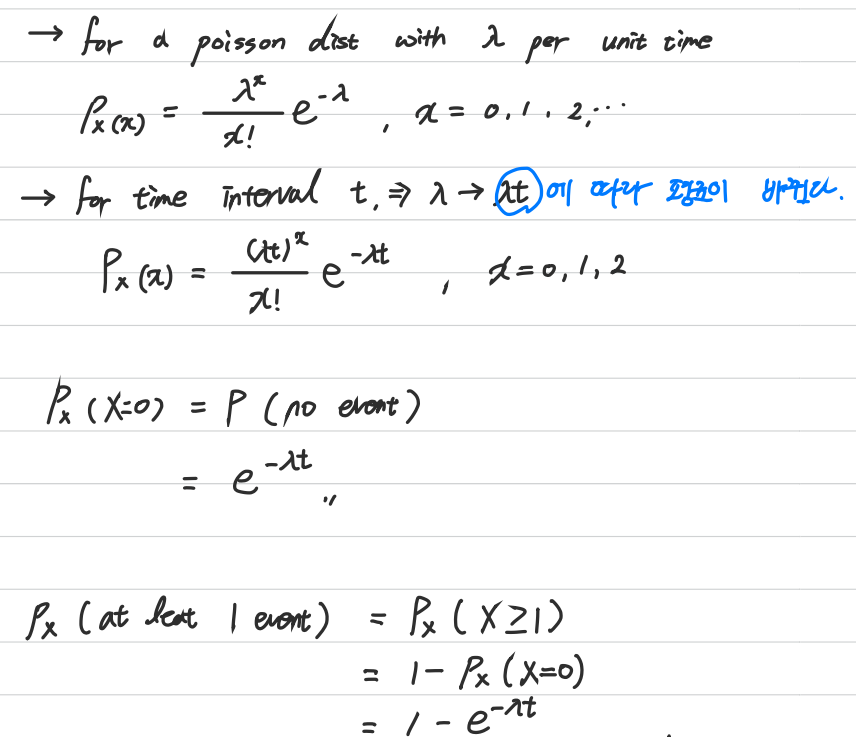 → for a poisson dist with λ per unit time
Px(x) = λ^x / x! e^-λ , x = 0, 1, 2, ...
→ for time interval t, ⇒ λ → λt 에 따라 평균이 바뀐다.
Px(x) = (λt)^x / x! e^-λt , x = 0, 1, 2
Px (X=0) = P (no event)
= e^-λt
Px (at leat 1 event) = Px (X≥1)
= 1 - Px (X=0)
= 1 - e^-λt